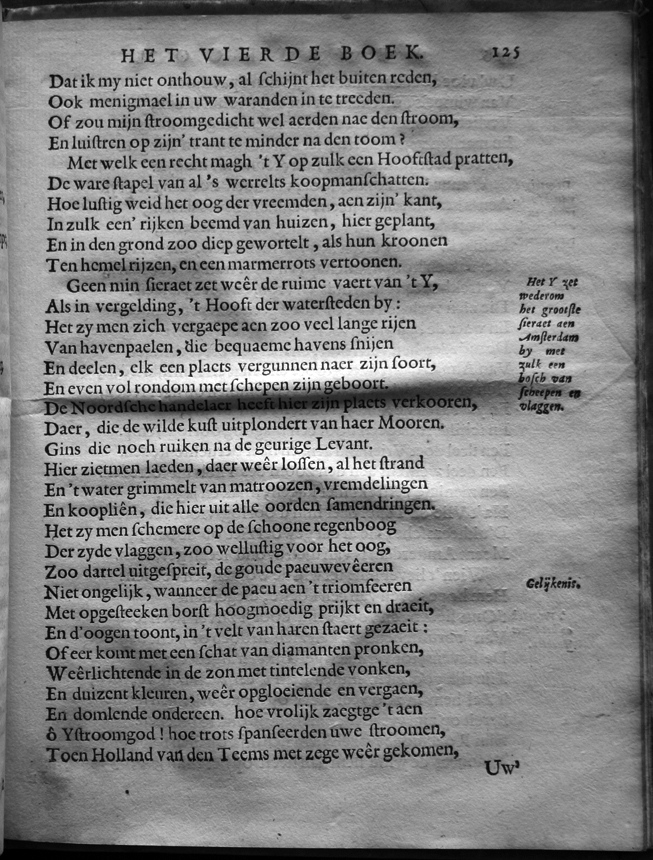 HET VIERDE BOEK. 125
Dat ik my niet onthouw, al ſchijnt het buiten reden,
Ook menigmael in uw waranden in te treeden.
Of zou mijn ſtroomgedicht wel aerden nae den ſtroom,
En luiſtren op zijn' trant te minder na den toom?
Met welk een recht magh 't Y op zulk een Hooftſtad pratten,
De ware ſtapel van al 's werrelts koopmanſchatten.
Hoe luſtig weid het oog der vreemden, aen zijn' kant,
In zulk een' rijken beemd van huizen, hier geplant,
En in den grond zoo diep gewortelt, als hun kroonen
Ten hemel rijzen, en een marmerrots vertoonen.
Geen min ſieraet zet weêr de ruime vaert van 't Y,
Als in vergelding, 't Hooft der waterſteden by:
Het zy men zich vergaepe aen zoo veel lange rijen
Van havenpaelen, die bequaeme havens ſnijen
En deelen, elk een plaets vergunnen naer zijn ſoort,
En even vol rondom met ſchepen zijn geboort.
De Noordſche handelaer heeft hier zijn plaets verkooren,
Daer, die de wilde kuſt uitplondert van haer Mooren.
Gins die noch ruiken na de geurige Levant.
Hier zietmen laeden, daer weêr loſſen, al het ſtrand
En 't water grimmelt van matroozen, vremdelingen
En koopliên, die hier uit alle oorden ſamendringen.
Het zy men ſchemere op de ſchoone regenboog
Der zyde vlaggen, zoo welluſtig voor het oog,
Zoo dartel uitgeſpreit, de goude paeuwevêeren
Niet ongelijk, wanneer de paeu aen 't triomfeeren
Met opgeſteeken borſt hoogmoedig prijkt en draeit,
En d'oogen toont, in 't velt van haren ſtaert gezaeit:
Of eer komt met een ſchat van diamanten pronken,
Weêrlichtende in de zon met tintelende vonken,
En duizent kleuren, weêr opgloeiende en vergaen,
En domlende ondereen. hoe vrolijk zaegtge 't aen
ô Yſtroomgod! hoe trots ſpanſeerden uwe ſtroomen,
Toen Holland van den Teems met zege weêr gekomen,
Uw'
Het Y zet
wederom
het grootſte
ſieraet aen
Amſterdam
by met
zulk een
boſch van
ſcheepen en
vlaggen.
Gelijkenis.